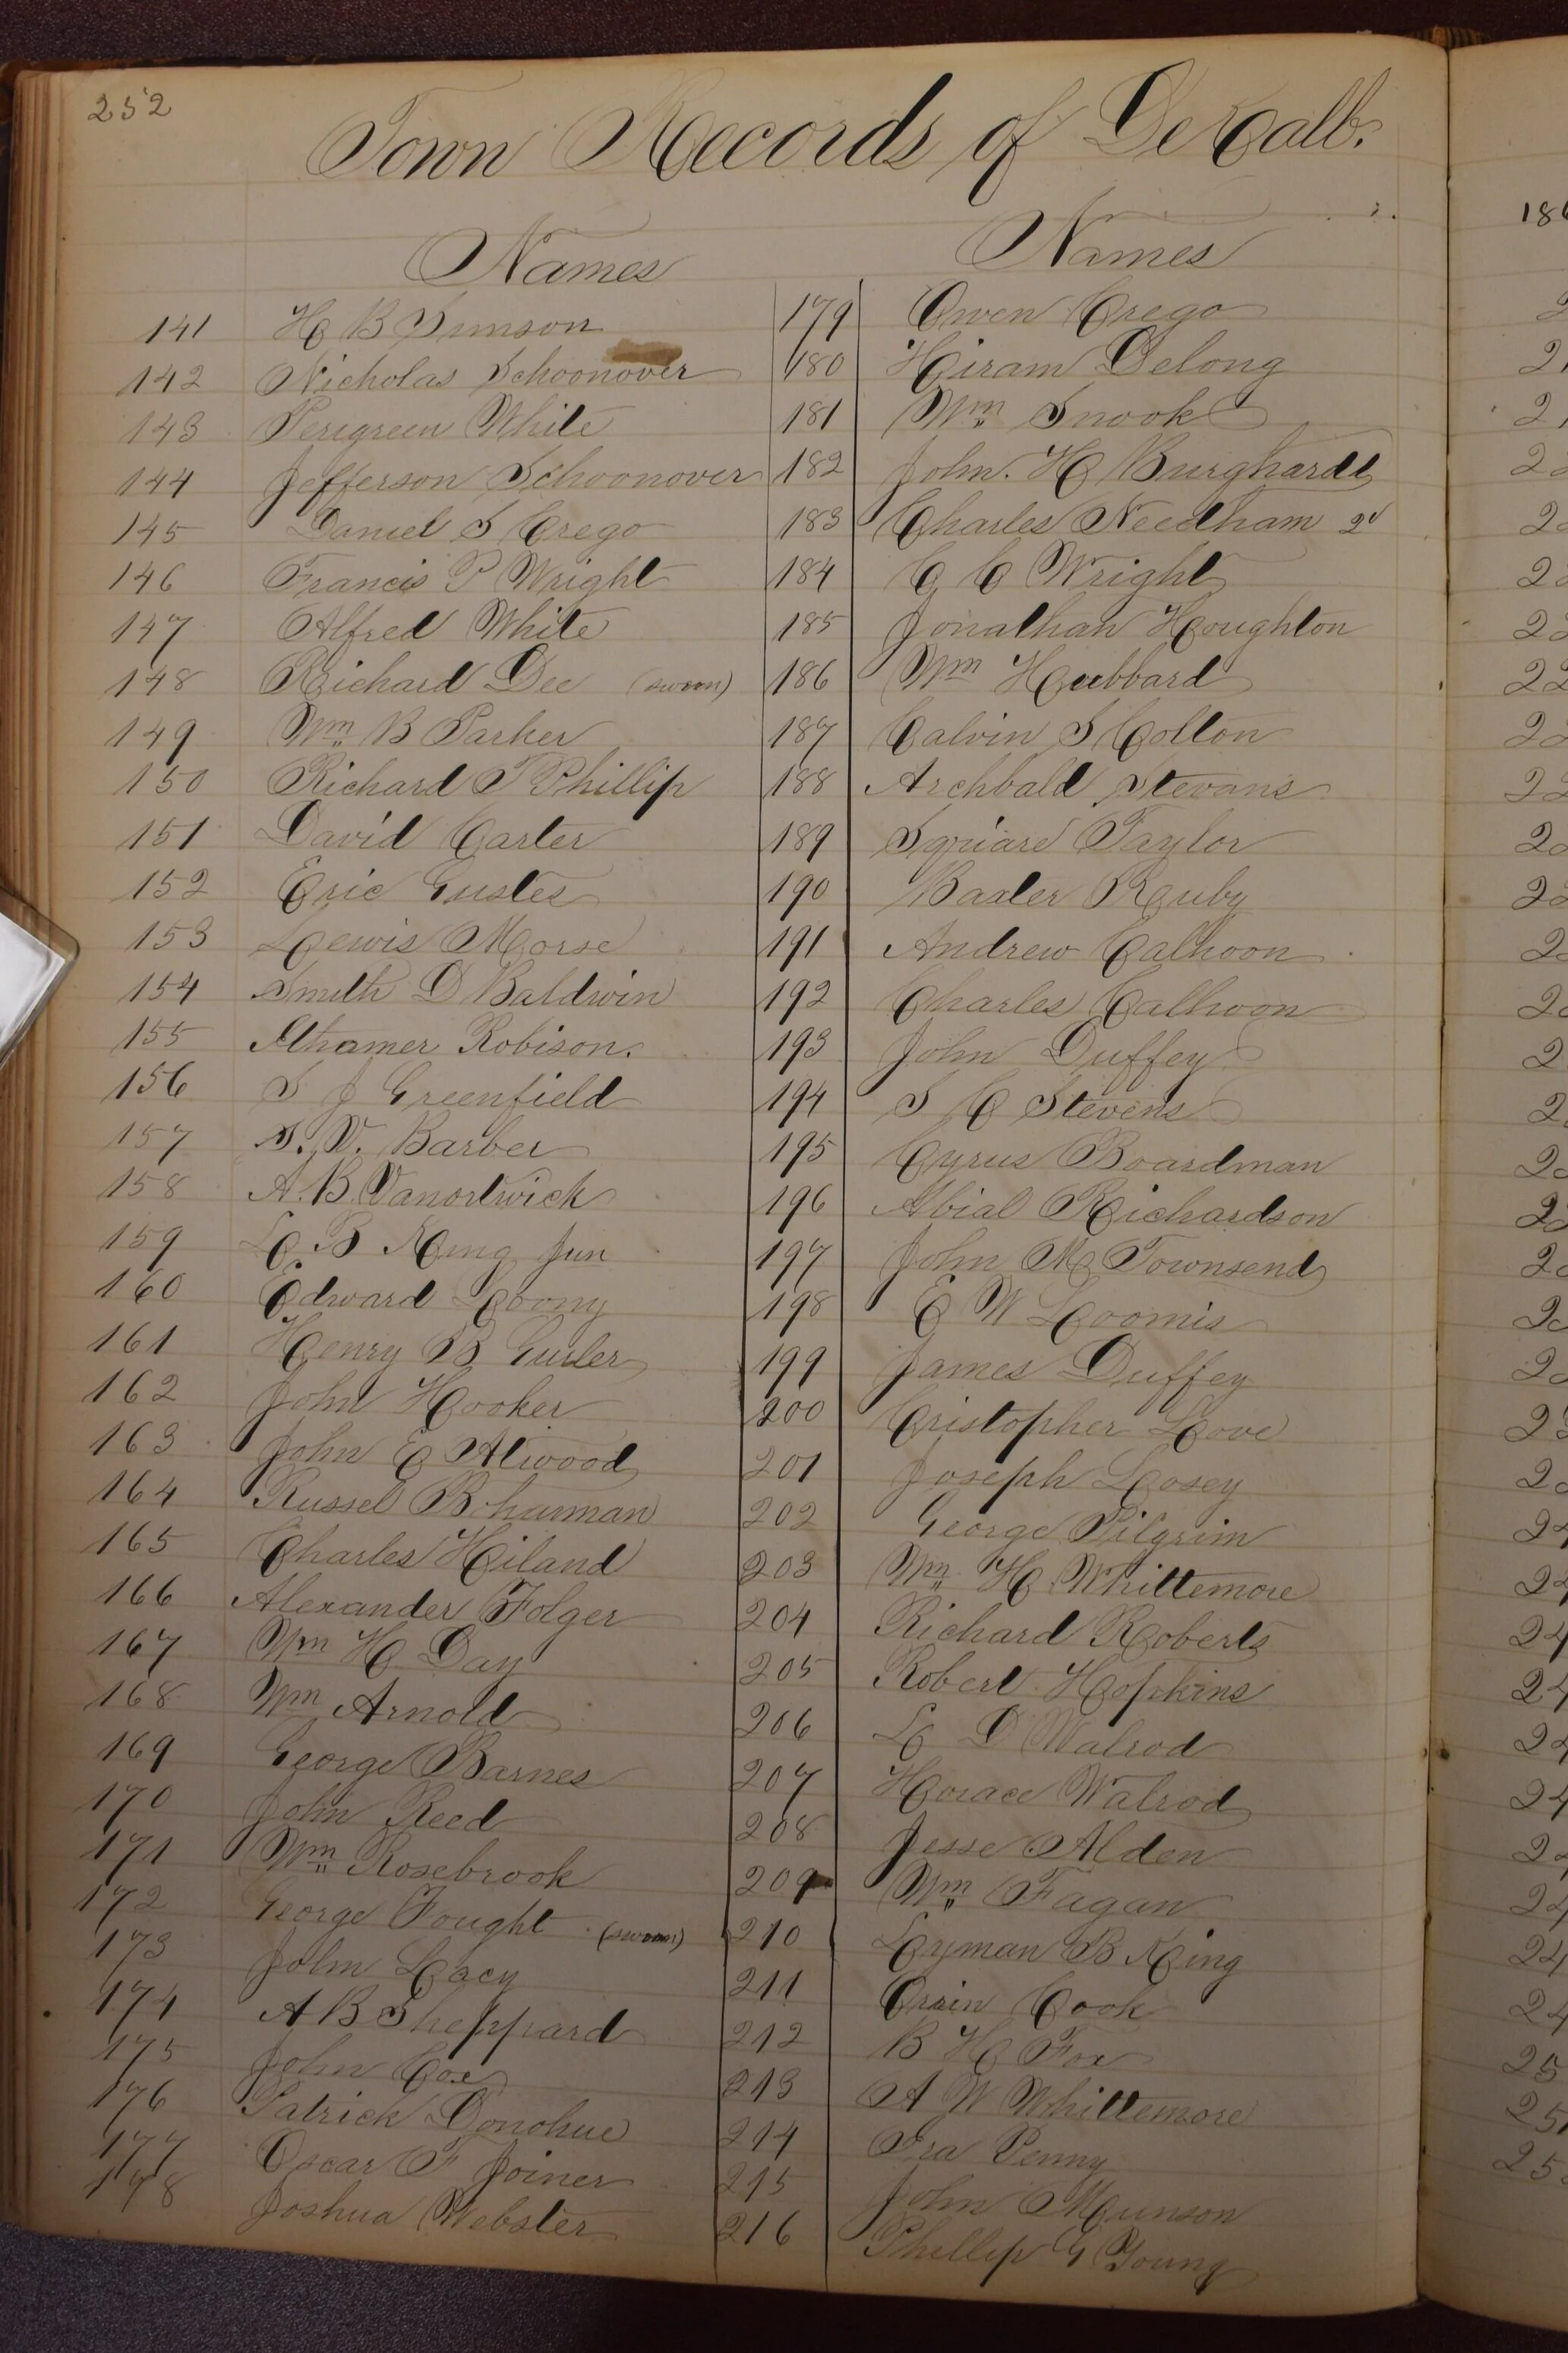 252
Town Records of DeKalb.
Names
141 H B Simson
142 Nicholas Schoonover
143 Perigreen White
144 Jefferson Schoonover
145 Daniel S Crego
146 Francis P Wright
147 Alfred White
148 Richard Dee (sworn)
149 Wm B Parker
150 Richard T Phillip
151 David Carter
152 Eric Gustes
153 Lewis Morse
154 Smith D Baldwin
155 Ithamer Robison.
156 S J Greenfield
157 S. V. Barber
158 A. B. Vanortwick
159 L B King Jun
160 Edward Loony
161 Henry B Gurler
162 John Hooker
163 John E Atwood
164 Russel Bohurman
165 Charles Hiland
166 Alexander Folger
167 Wm H Day
168 Wm Arnold
169 George Barnes
170 John Reed
171 Wm Rosebrook
172 George Fought (sworn)
173 John Lacy
174 A B Sheppard
175 John Cox
176 Patrick Donohue
177 Oscar F Joiner
178 Joshua Webster
Names
179 Owen Crego
180 Hiram Delong
181 Wm Snook
182 John. H Burghardt
183 Charles Needham 2d
184 C C Wright
185 Jonathan Houghton
186 Wm Hubbard
187 Calvin S Colton
188 Archbald Stevans
189 Squiare Taylor
190 Baxter Rauby
191 Andrew Calhoon
192 Charles Calhoon
193 John Duffey
194 S C Stevens
195 Cyrus Boardman
196 Abial Richardson
197 John M Townsend
198 E W Loomis
199 James Duffey
200 Cristopher Love
201 Joseph Losey
202 George Pilgrim
203 Wm H Whittemore
204 Richard Roberts
205 Robert Hopkins
206 L D Walrod
207 Horace Walrod
208 Jesse Alden
209 Wm Fagan
210 Lyman B King
211 Orrin Cook
212 B H Fox
213 A W Whittemore
214 Ira Penny
215 John Munson
216 Phillip G Young